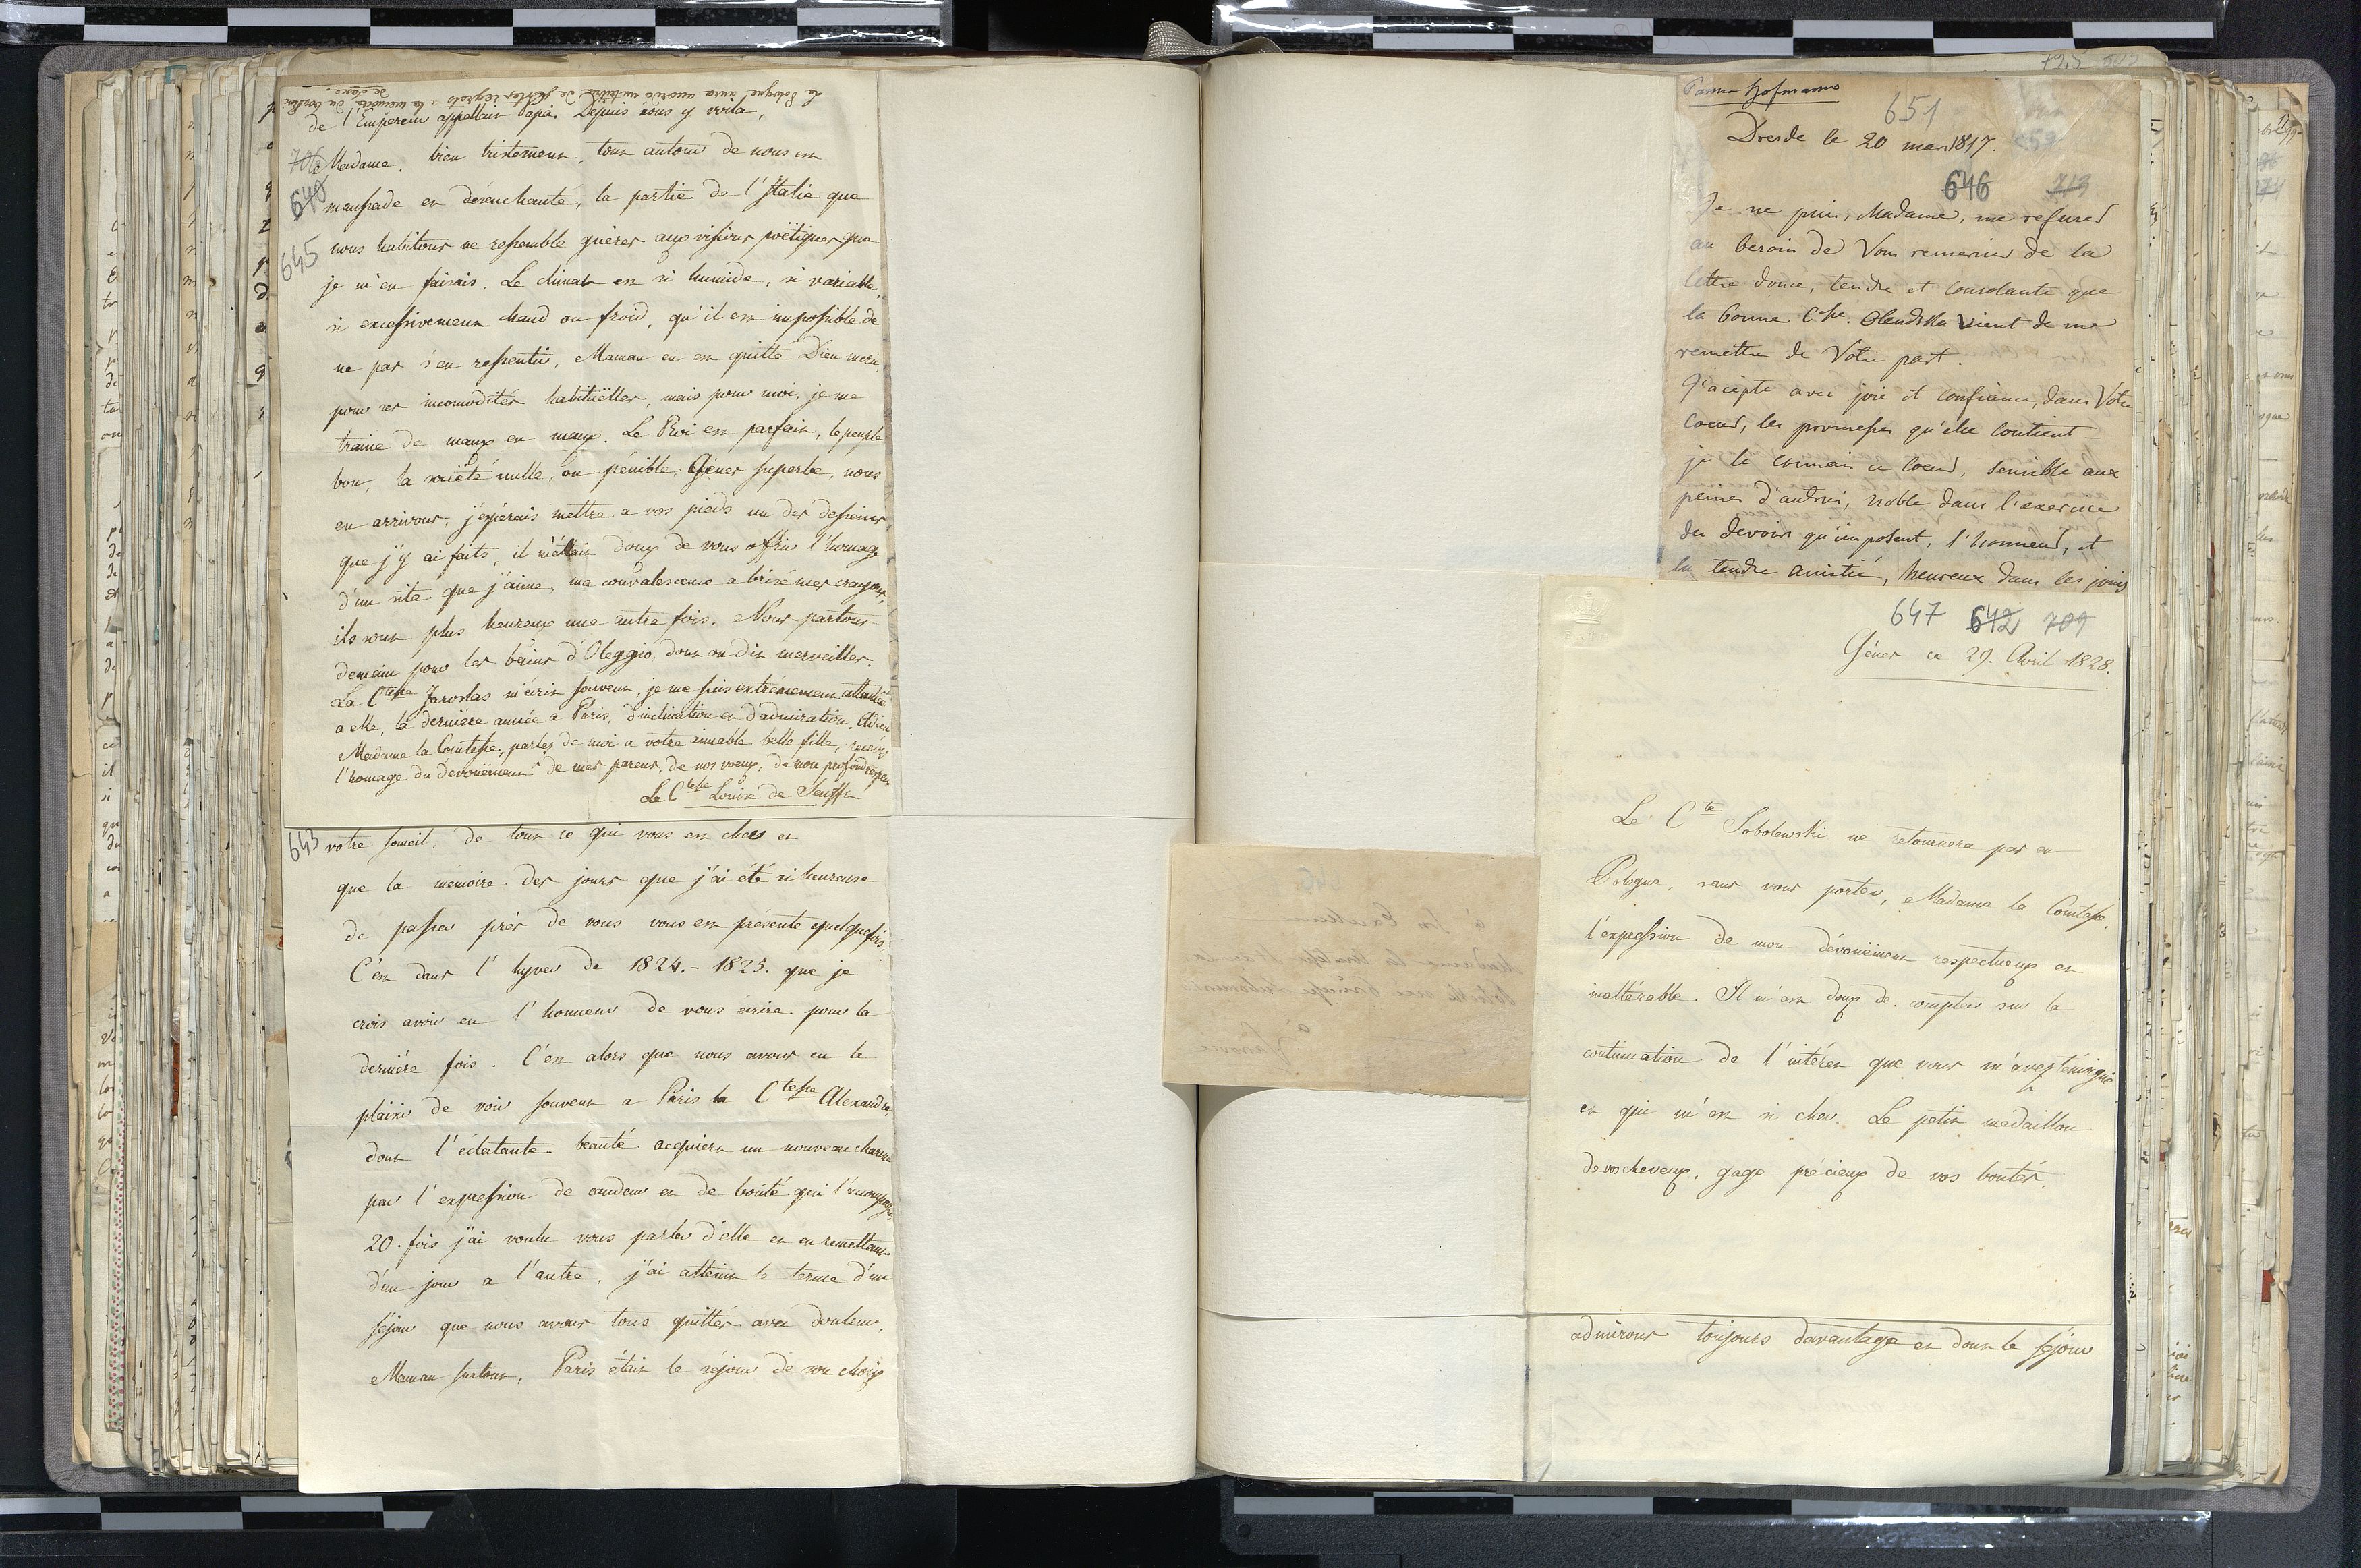 La Pologne aura aussi de justes regrets à la mémoire du
de Saxe.
de l'Empereur appellait Papa. Depuis nous y voila,
706 Madame, bien tristement, tout autour de nous est
640 maussade et désenchanté, la partie de l'Italie que
645 nous habitons ne ressemble guères aux visions poëtiques que
je m'en faisais. Le climat est si humide, si variable,
si excessivement chaud ou froid, qu'il est impossible de
ne pas s'en ressentir, Maman en est quitte Dieu merci,
pour ses incomodités habituëlles, mais pour moi, je me
traine de maux en maux. Le Roi est parfait, le peuple
bon, la société nulle, ou pénible. Gènes superbe, nous
en arrivons, j'espérais mettre a vos pieds un des desseins,
que j'y ai faits, il m'était doux de vous offrir l'homage
d'un site que j'aime, ma convalescence a brisé mes crayons,
ils sont plus heureux une autre fois. Nous partons
demain pour les bains d'Oleggio, dont on dit merveilles.
La Ctesse Jaroslas m'écrit souvent, je me suis extrêmement attachée
a elle, la dernière année a Paris, d'inclination et d'admiration. Adieu
Madame la Comtesse, parlez de moi a votre aimable belle fille, recevez
l'homage du dévouëment de mes parens, de nos voeux, de mon profond respect
La Ctesse Louise de Senfft
643 votre someil, de tout ce qui vous est cher et
que la mémoire des jours que j'ai été si heureuse
de passer près de vous vous est présente quelquefois.
C'est dans l'hyver de 1824.-1825. que je
crois avoir eu l'honneur de vous écrire pour la
dernière fois. C'est alors que nous avons eu le
plaisir de voir souvent a Paris la Ctesse Alexandre,
dont l'éclatante beauté acquiert un nouveau charme
par l'expression de candeur et de bonté qui l'accompagne,
20. fois j'ai voulu vous parler d'elle et en remettant
d'un jour a l'autre, j'ai atteint le terme d'un
séjour que nous avons tous quittés avec douleur,
Maman surtout, Paris était le séjour de son choix
Panna Hofmann
651
Dresde le 20 mars 1817.
646 713
Je ne puis, Madame, me refuser
au besoin de Vous remercier de la
lettre douce, tendre et consolante que
la bonne Ctsse. vient de me
remettre de Votre part.
J'acepte avec joie et confiance, dans Votre
coeur, les promesses qu'elle contient –
je le connais ce coeur, sensible aux
peines d'autrui, noble dans l'exercice
des devoirs qu'imposent, l'honneur, et
la tendre amitié, heureux dans les joies
647 642 709
Gènes ce 29. Avril 1828.
Le Cte Sobolewski ne retournera pas en
Pologne, sans vous porter, Madame la Comtesse,
l'expression de mon dévouëment respectueux et
inaltérable. Il m'est doux de compter sur la
continuation de l'intérêt que vous m'avez témoigné
et qui m'est si cher. Le petit médaillon
de vos cheveux, gage précieux de vos bontés,
admirons toujours davantage et dont le séjour